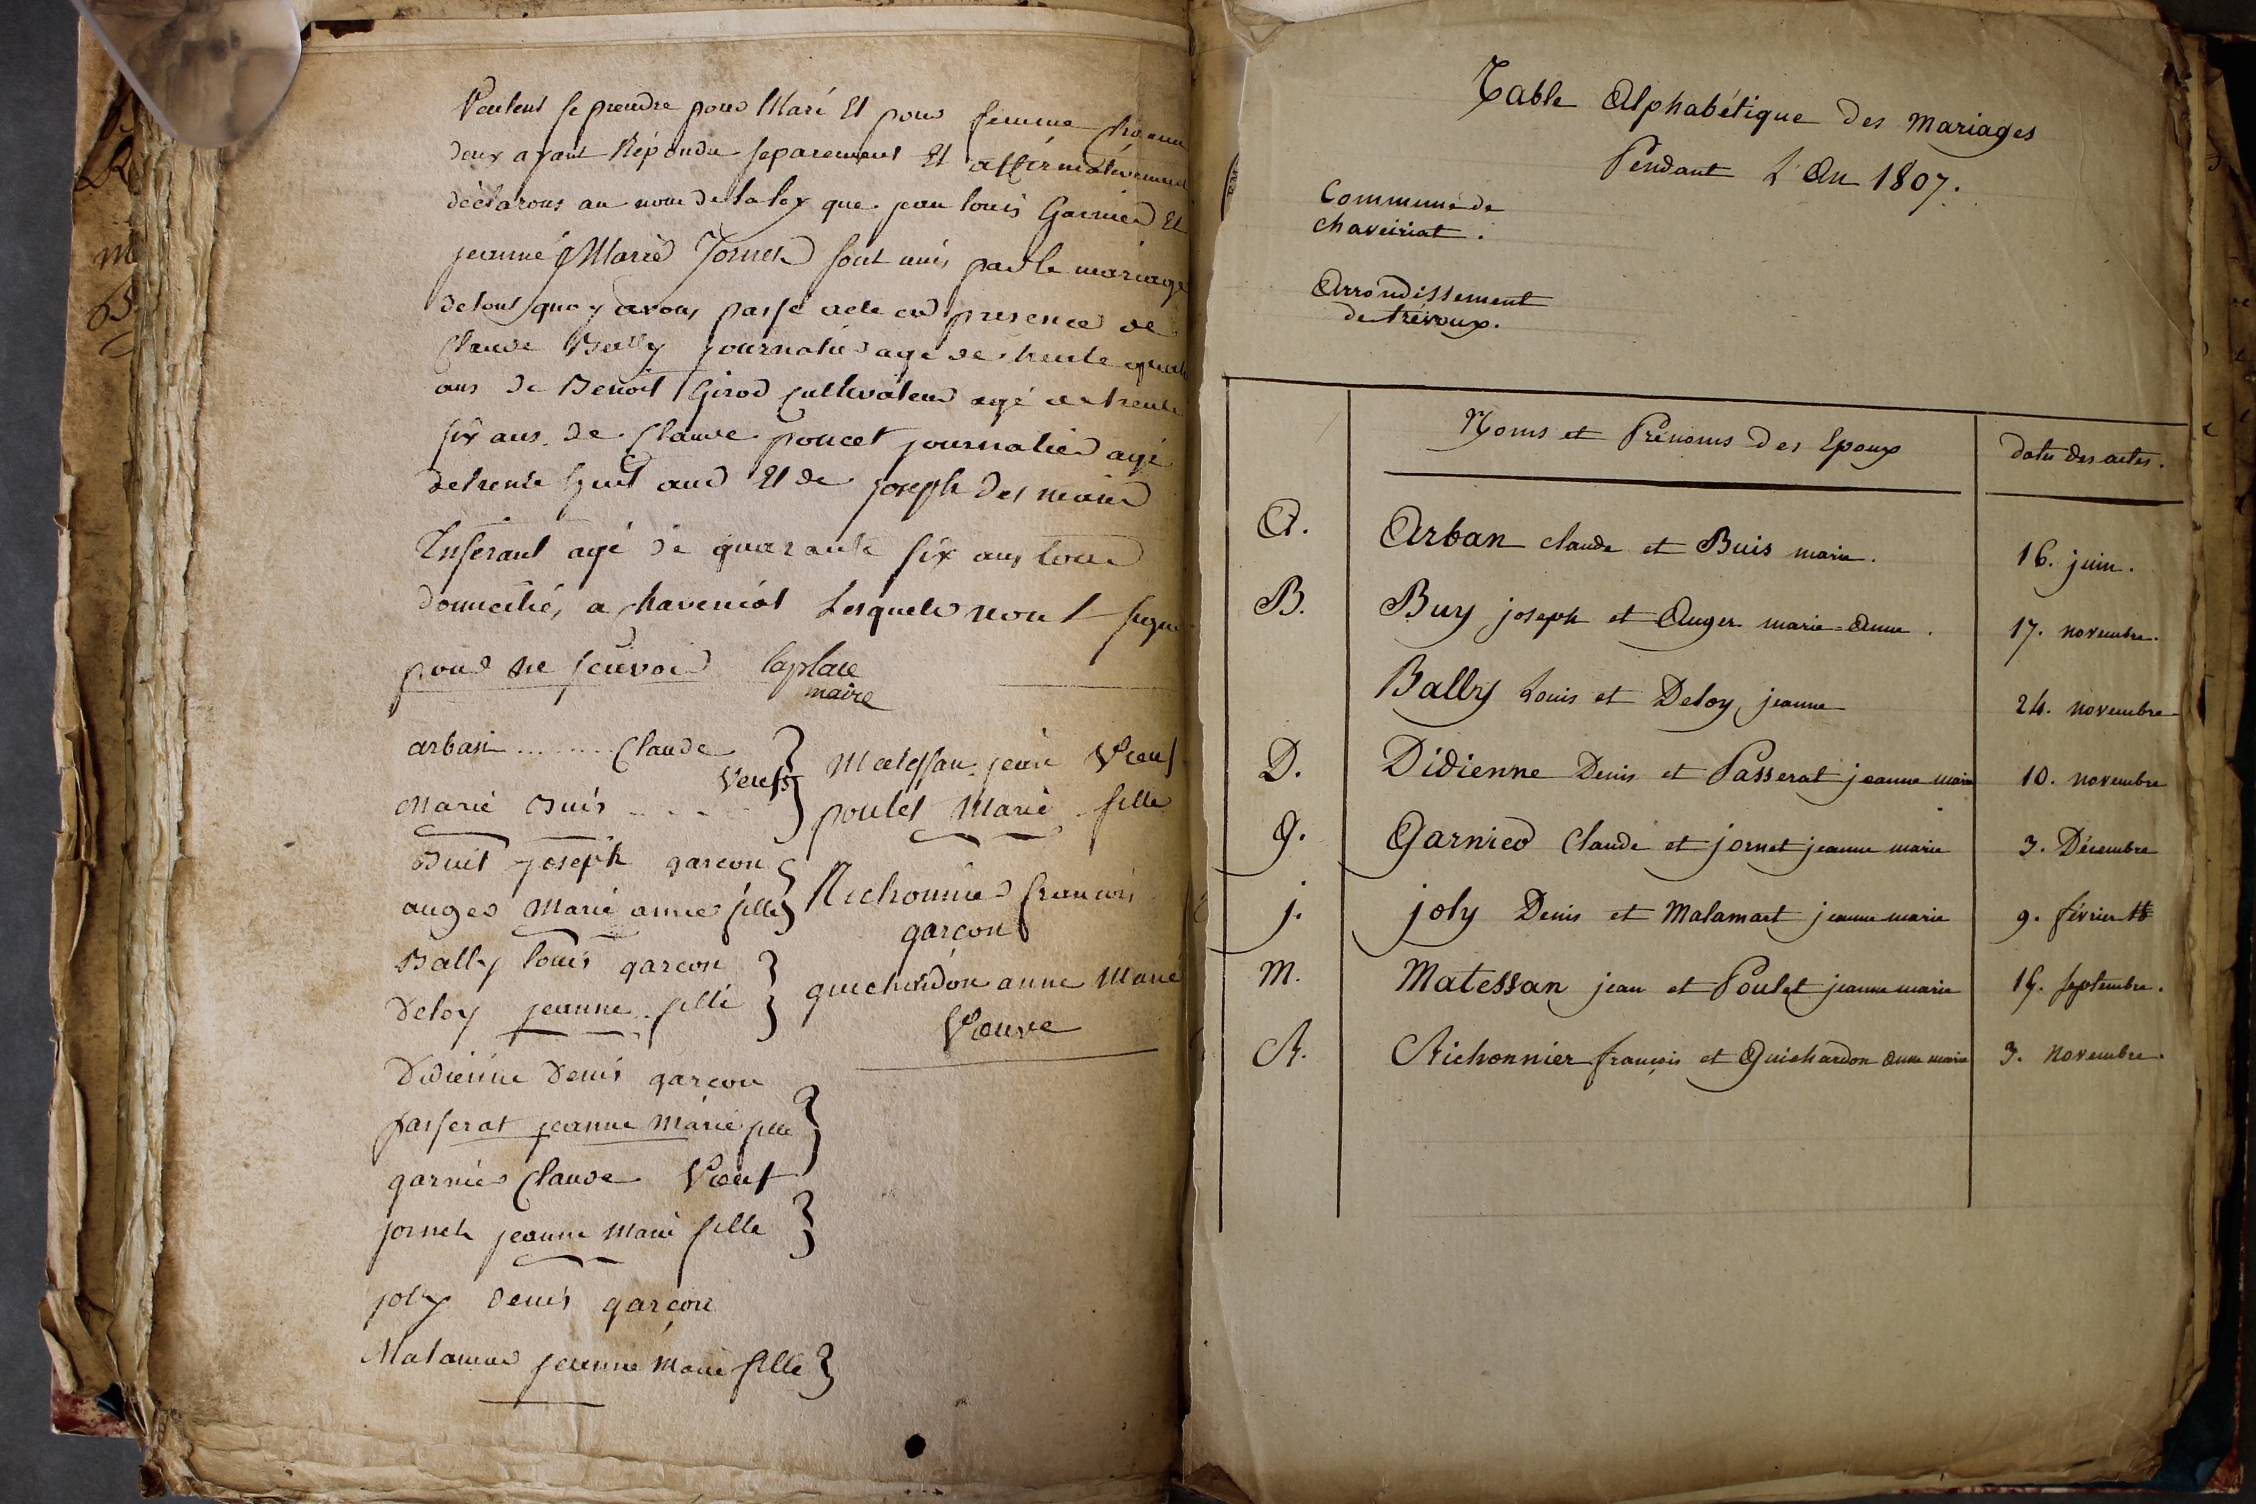 Veulent se prendre pour Mari Et pour femme chacun
deux ayant Répondu separement Et affirmativement
déclarons au nom de la loy que jean louis Garnier Et
jeanne Marie Jornet sont unis par le mariage
de tout quoy avons passé acte en presence de
Claude Bally journalier agé de trente quatre
ans de Benoit Girod Cultivateur agé de trente
six ans de Claude poncet journalier agé
de trente huit ans Et de joseph des
agé de quarante six ans tous
domciliés a chaveiriat Lesquels n'ont signé
pour ne scavoir laplace
maire
arban ........ Claude
Veufs
Marie Buis . . . .
Buit joseph garcon
auger Marie anne fille
Bally louis garcon
Deloy jeanne fille
Didienne Denis garcon
passerat jeanne Marie fille
garnier Claude Veuf
jornet jeanne Marie fille
joly denis garçon
Malamar jeanne Marie fille
Matessan jean Veuf
poulet Marie fille
Richonnier francois
garçon
guichardon anne Marie
Veuve
Table Alphabétique Des Mariages
Pendant L'An 1807.
Commune de
chaveiriat.
Arrondissement
de trévoux.
Noms et Prénoms Des Epoux
Dates des actes.
A. Arban claude et Buis marie. 16. juin.
B. Buy joseph et Auger marie-anne. 17. novembre.
Bally Louis et Deloy jeanne 24. novembre
D. Didienne Denis et Passerat jeanne marie 10. novembre
G. Garnier Claude et jornet jeanne marie 3. Décembre
j. joly Denis et Malamart jeanne marie 9. février
M. Matessan jean et Poulet jeanne marie septembre.
R. Richonnier françois et Guichardon anne marie 3. novembre.